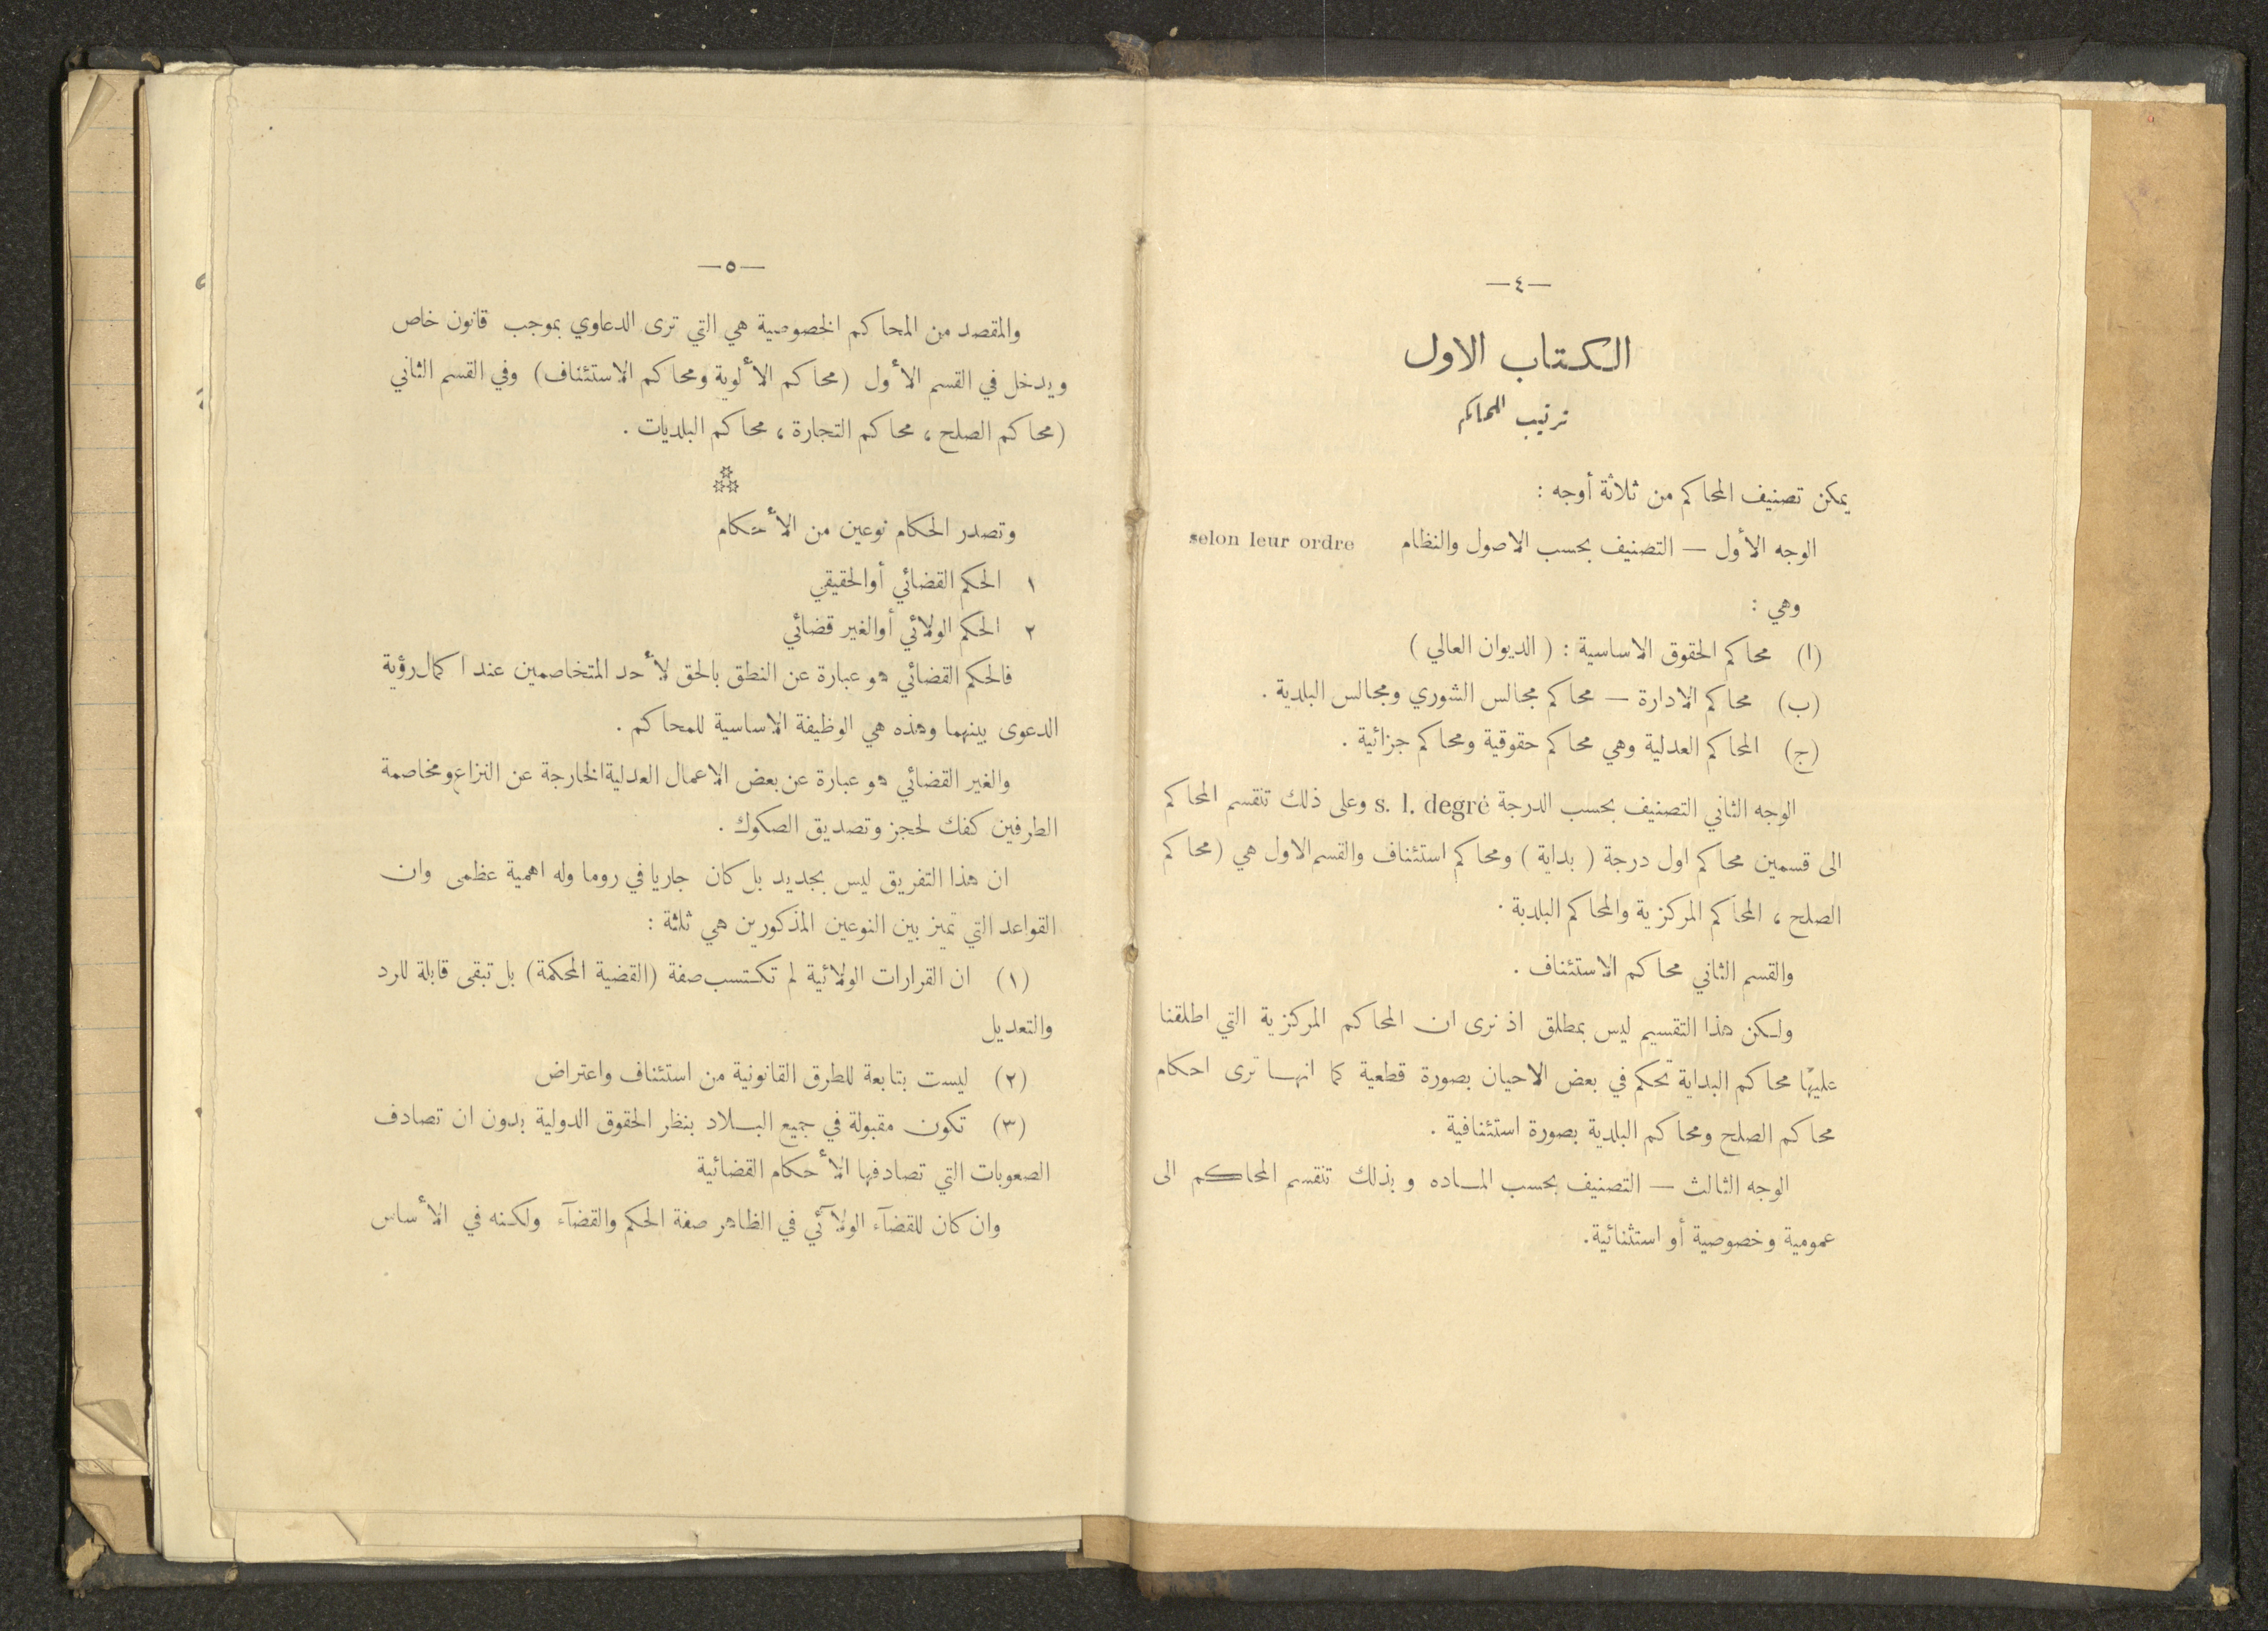 —٤—
الكتاب الاول
ترتيب المحاكم
يمكن تصنيف المحاكم من ثلاثة أوجه :
الوجه الأول — التصنيف بحسب الاصول والنظام selon leur ordre
وهي :
(ا) محاكم الحقوق الاساسية : ( الديوان العالي )
(ب) محاكم الادارة — محاكم مجالس الشوري ومجالس البلدية .
(ج) المحاكم العدلية وهي محاكم حقوقية ومحاكم جزائية .
الوجه الثاني التصنيف بحسب الدرجة s. l. degré وعلى ذلك تنقسم المحاكم
الى قسمين محاكم اول درجة ( بداية ) ومحاكم استئناف والقسم الاول هي (محاكم
الصلح ، المحاكم المركزية والمحاكم البلدية .
والقسم الثاني محاكم الاستئناف .
ولكن هذا التقسيم ليس بمطلق اذ نرى ان المحاكم المركزية التي اطلقنا
عليها محاكم البداية تحكم في بعض الاحيان بصورة قطعية كما انها ترى احكام
محاكم الصلح ومحاكم البلدية بصورة استئنافية .
الوجه الثالث — التصنيف بحسب الماده وبذلك تنقسم المحاكم الى
عمومية وخصوصية أو استثنائية.
—٥—
والمقصد من المحاكم الخصوصية هي التي ترى الدعاوي بموجب قانون خاص
ويدخل في القسم الأول (محاكم الألوية ومحاكم الاستئناف) وفي القسم الثاني
(محاكم الصلح ، محاكم التجارة ، محاكم البلديات .
وتصدر الحكام نوعين من الأحكام
١ الحكم القضائي أوالحقيقي
٢ الحكم الولائي أوالغير قضائي
فالحكم القضائي هو عبارة عن النطق بالحق لأحد المتخاصمين عند اكمال رؤية
الدعوى بينهما وهذه هي الوظيفة الاساسية للمحاكم .
والغير القضائي هو عبارة عن بعض الاعمال العدلية الخارجة عن النزاع ومخاصمة
الطرفين كفك لحجز وتصديق الصكوك .
ان هذا التفريق ليس بجديد بل كان جاريا في روما وله اهمية عظمى وان
القواعد التي تميز بين النوعين المذكورين هي ثلثة :
(١) ان القرارات الولائية لم تكتسب صفة (القضية المحكمة) بل تبقى قابلة للرد
والتعديل
(٢) ليست بتابعة للطرق القانونية من استئناف واعتراض
(٣) تكون مقبولة في جميع البلاد بنظر الحقوق الدولية بدون ان تصادف
الصعوبات التي تصادفها الأحكام القضائية
وان كان للقضآء الولآئي في الظاهر صفة الحكم والقضآء ولكنه في الأساس